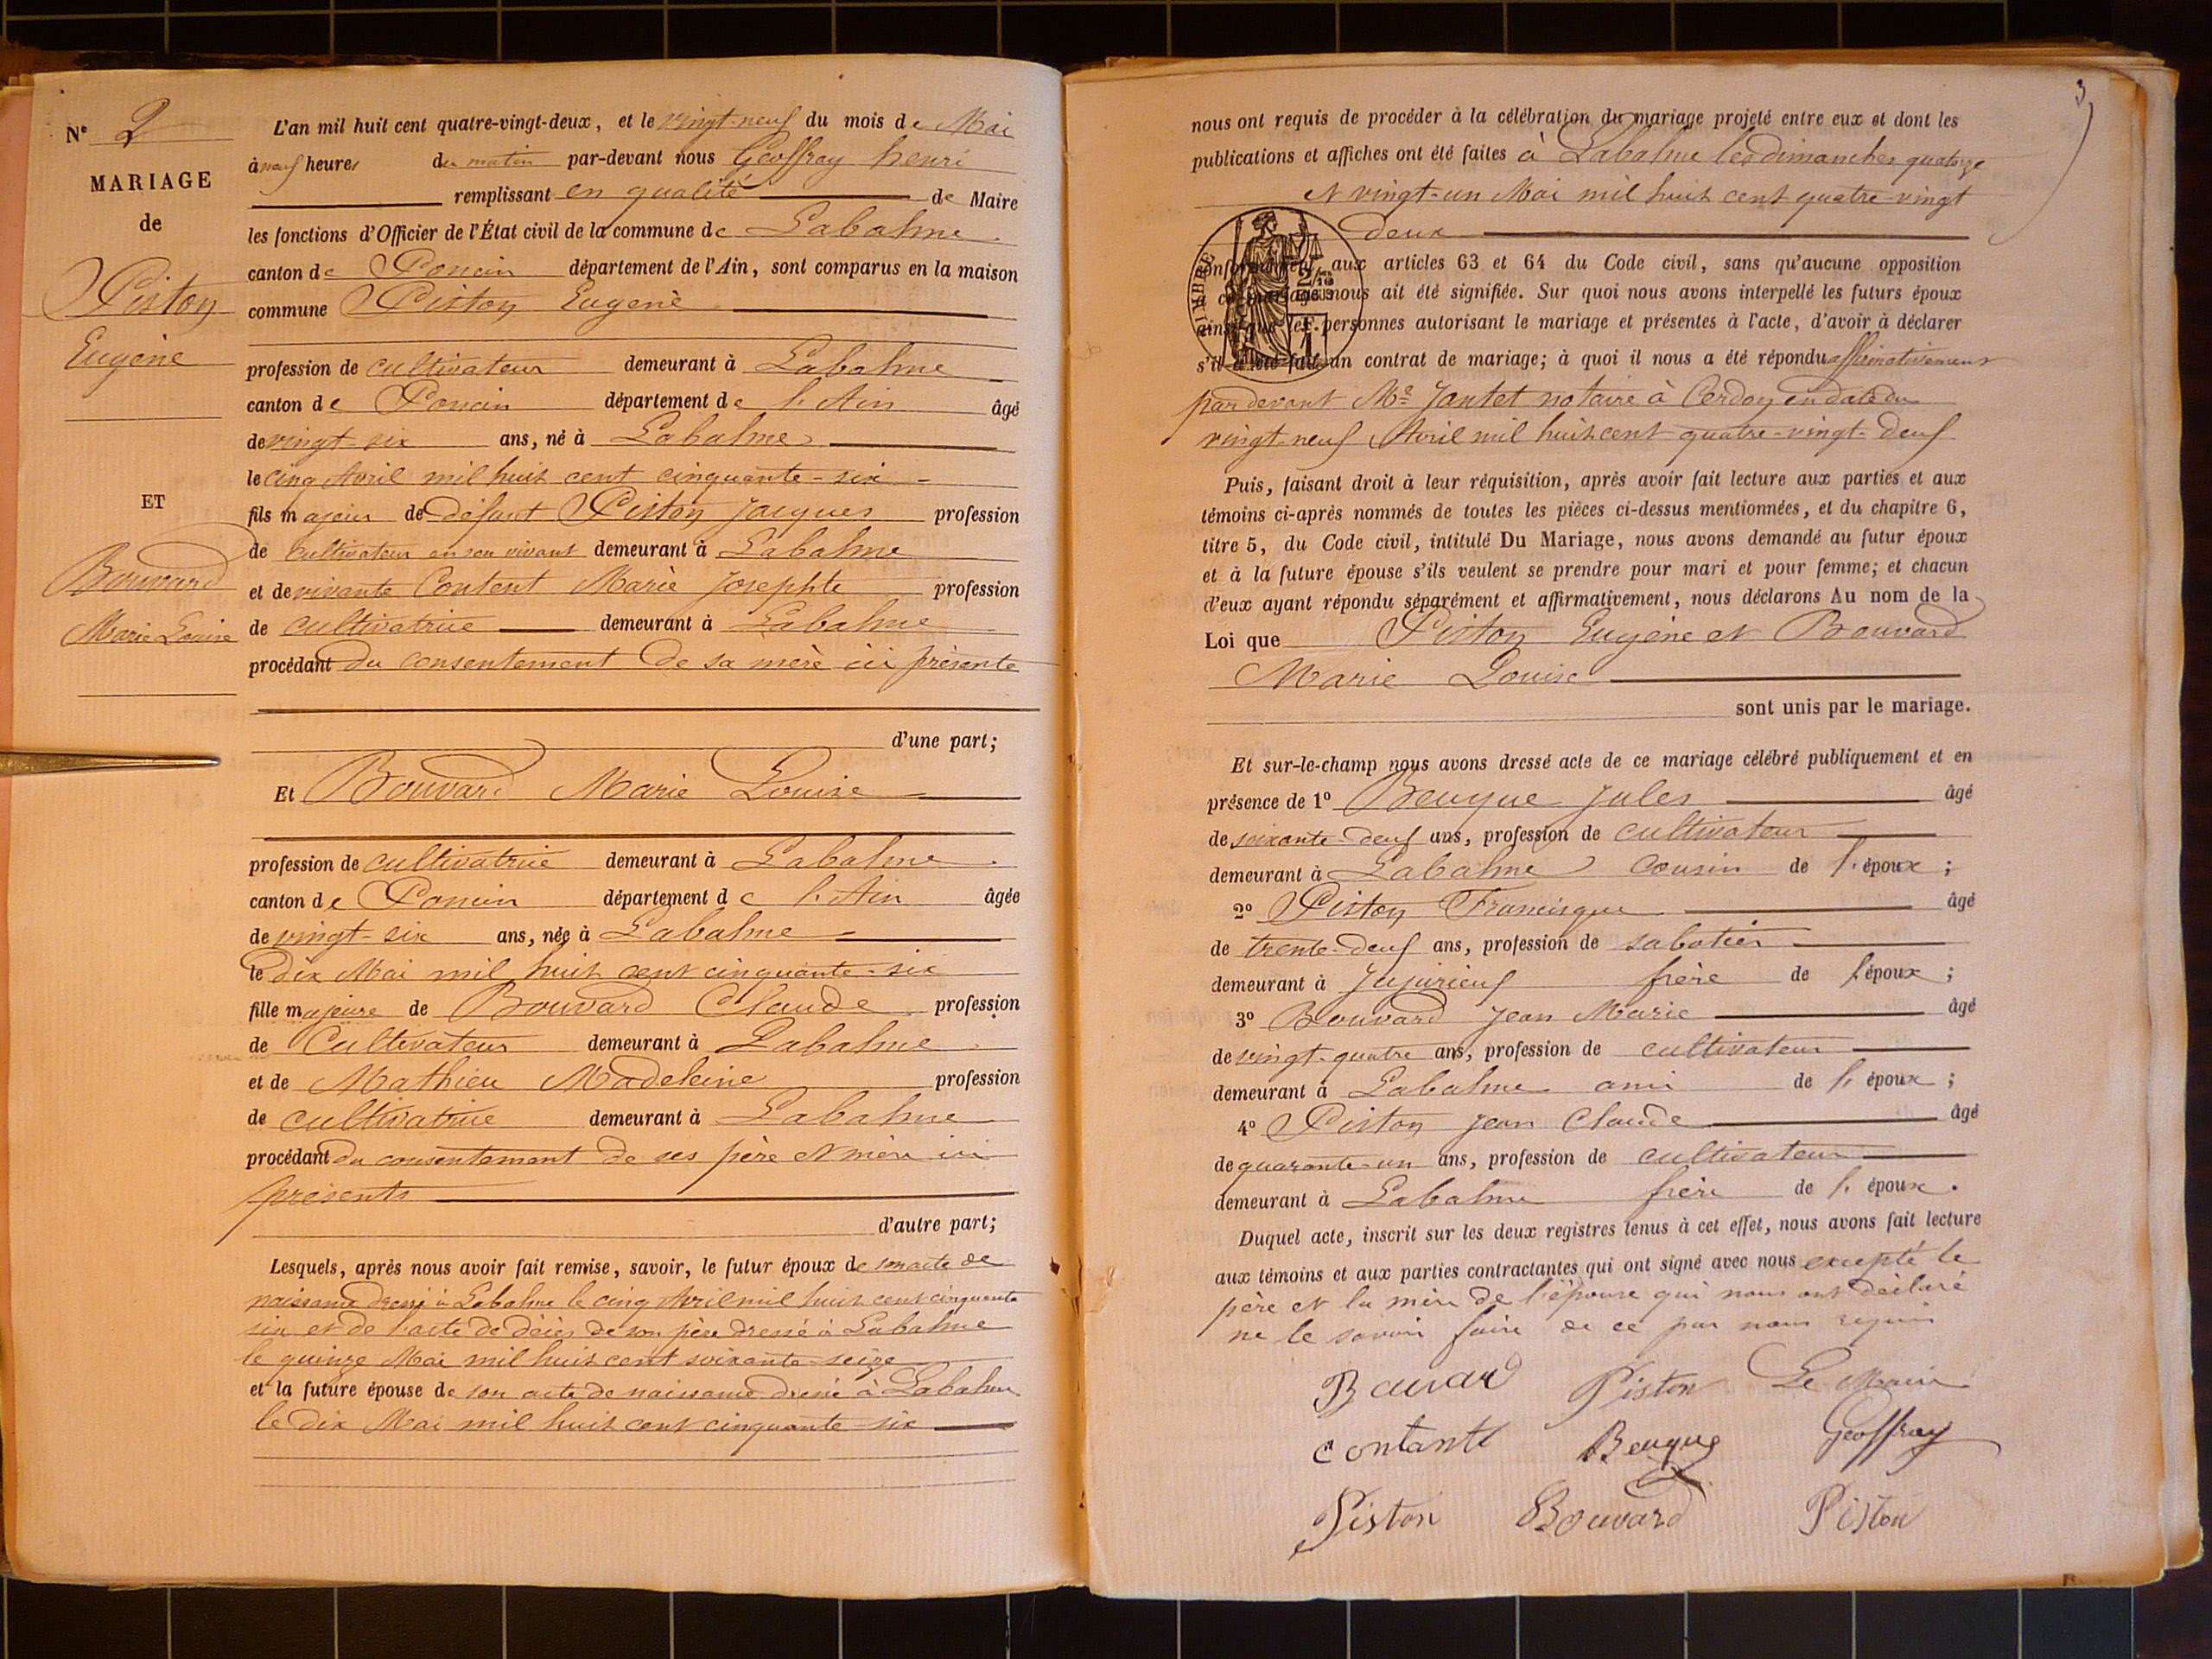 N° 2
MARIAGE
de
Piston
Eugène
ET
Bouvard
Marie Louise
L'an mil huit cent quatre-vingt-deux, et le vingt-neuf du mois de Mai
à neuf heures du matin par-devant nous Geoffray henri
remplissant en qualité de Maire
les fonctions d'Officier de l'État civil de la commune de Labalme
canton de Poncin département de l'Ain, sont comparus en la maison
commune Piston Eugène
profession de cultivateur demeurant à Labalme
canton de Poncin département de l'Ain âgé
de vingt-six ans, né à Labalme
le cinq Avril mil huit cent cinquante-six
fils majeur de défunt Piston Jacques profession
de cultivateur en son vivant demeurant à Labalme
et de vivante Content Marie Josephte profession
de cultivatrice demeurant à Labalme
procédant du consentement de sa mère ici présente
d'une part;
Et Bouvard Marie Louise
profession de cultivatrice demeurant à Labalme
canton de Poncin département de l'Ain âgée
de vingt-six ans, née à Labalme
le dix Mai mil huit cent cinquante-six
fille majeure de Bouvard Claude profession
de Cultivateur demeurant à Labalme
et de Mathieu Madeleine profession
de cultivatrice demeurant à Labalme
procédant du consentement de ses père et mère ici
présents
d'autre part;
Lesquels, après nous avoir fait remise, savoir, le futur époux de son acte de
naissance dressé à Labalme le cinq Avril mil huit cent cinquante
six et de l'acte de décès de son père dressé à Labalme
le quinze Mai mil huit cent soixante-seize
et la future épouse de son acte de naissance dressé à Labalme
le dix Mai mil huit cent cinquante-six
3
nous ont requis de procéder à la célébration du mariage projeté entre eux et dont les
publications et affiches ont été faites à Labalme les dimanches quatorze
et vingt-un Mai mil huit cent quatre-vingt
deux
TIMBRE
conformément aux articles 63 et 64 du Code civil, sans qu'aucune opposition
à ce mariage nous ait été signifiée. Sur quoi nous avons interpellé les futurs époux
ainsi que les personnes autorisant le mariage et présentes à l'acte, d'avoir à déclarer
s'il a été fait un contrat de mariage; à quoi il nous a été répondu affirmativement
par devant Me Jantet notaire à Cerdon en date du
vingt-neuf Avril mil huit cent quatre-vingt-deux
Puis, faisant droit à leur réquisition, après avoir fait lecture aux parties et aux
témoins ci-après nommés de toutes les pièces ci-dessus mentionnées, et du chapitre 6,
titre 5, du Code civil, intitulé Du Mariage, nous avons demandé au futur époux
et à la future épouse s'ils veulent se prendre pour mari et pour femme; et chacun
d'eux ayant répondu séparément et affirmativement, nous déclarons Au nom de la
Loi que Piston Eugène et Bouvard
Marie Louise
sont unis par le mariage.
Et sur-le-champ nous avons dressé acte de ce mariage célébré publiquement et en
présence de 1° Beuque Jules âgé
de soixante-deux ans, profession de cultivateur
demeurant à Labalme cousin de l'époux;
2° Piston Francisque âgé
de trente-deux ans, profession de sabotier
demeurant à Jujurieux frère de l'époux;
3° Bouvard Jean Marie âgé
de vingt-quatre ans, profession de cultivateur
demeurant à Labalme ami de l'époux;
4° Piston Jean Claude âgé
de quarante-un ans, profession de cultivateur
demeurant à Labalme frère de l'époux.
Duquel acte, inscrit sur les deux registres tenus à cet effet, nous avons fait lecture
aux témoins et aux parties contractantes qui ont signé avec nous excepté le
père et la mère de l'épouse qui nous ont déclaré
ne le savoir faire de ce par nous requis
Bauvard Piston Le Maire
contante Beuque Geoffray
Piston Bouvard Piston